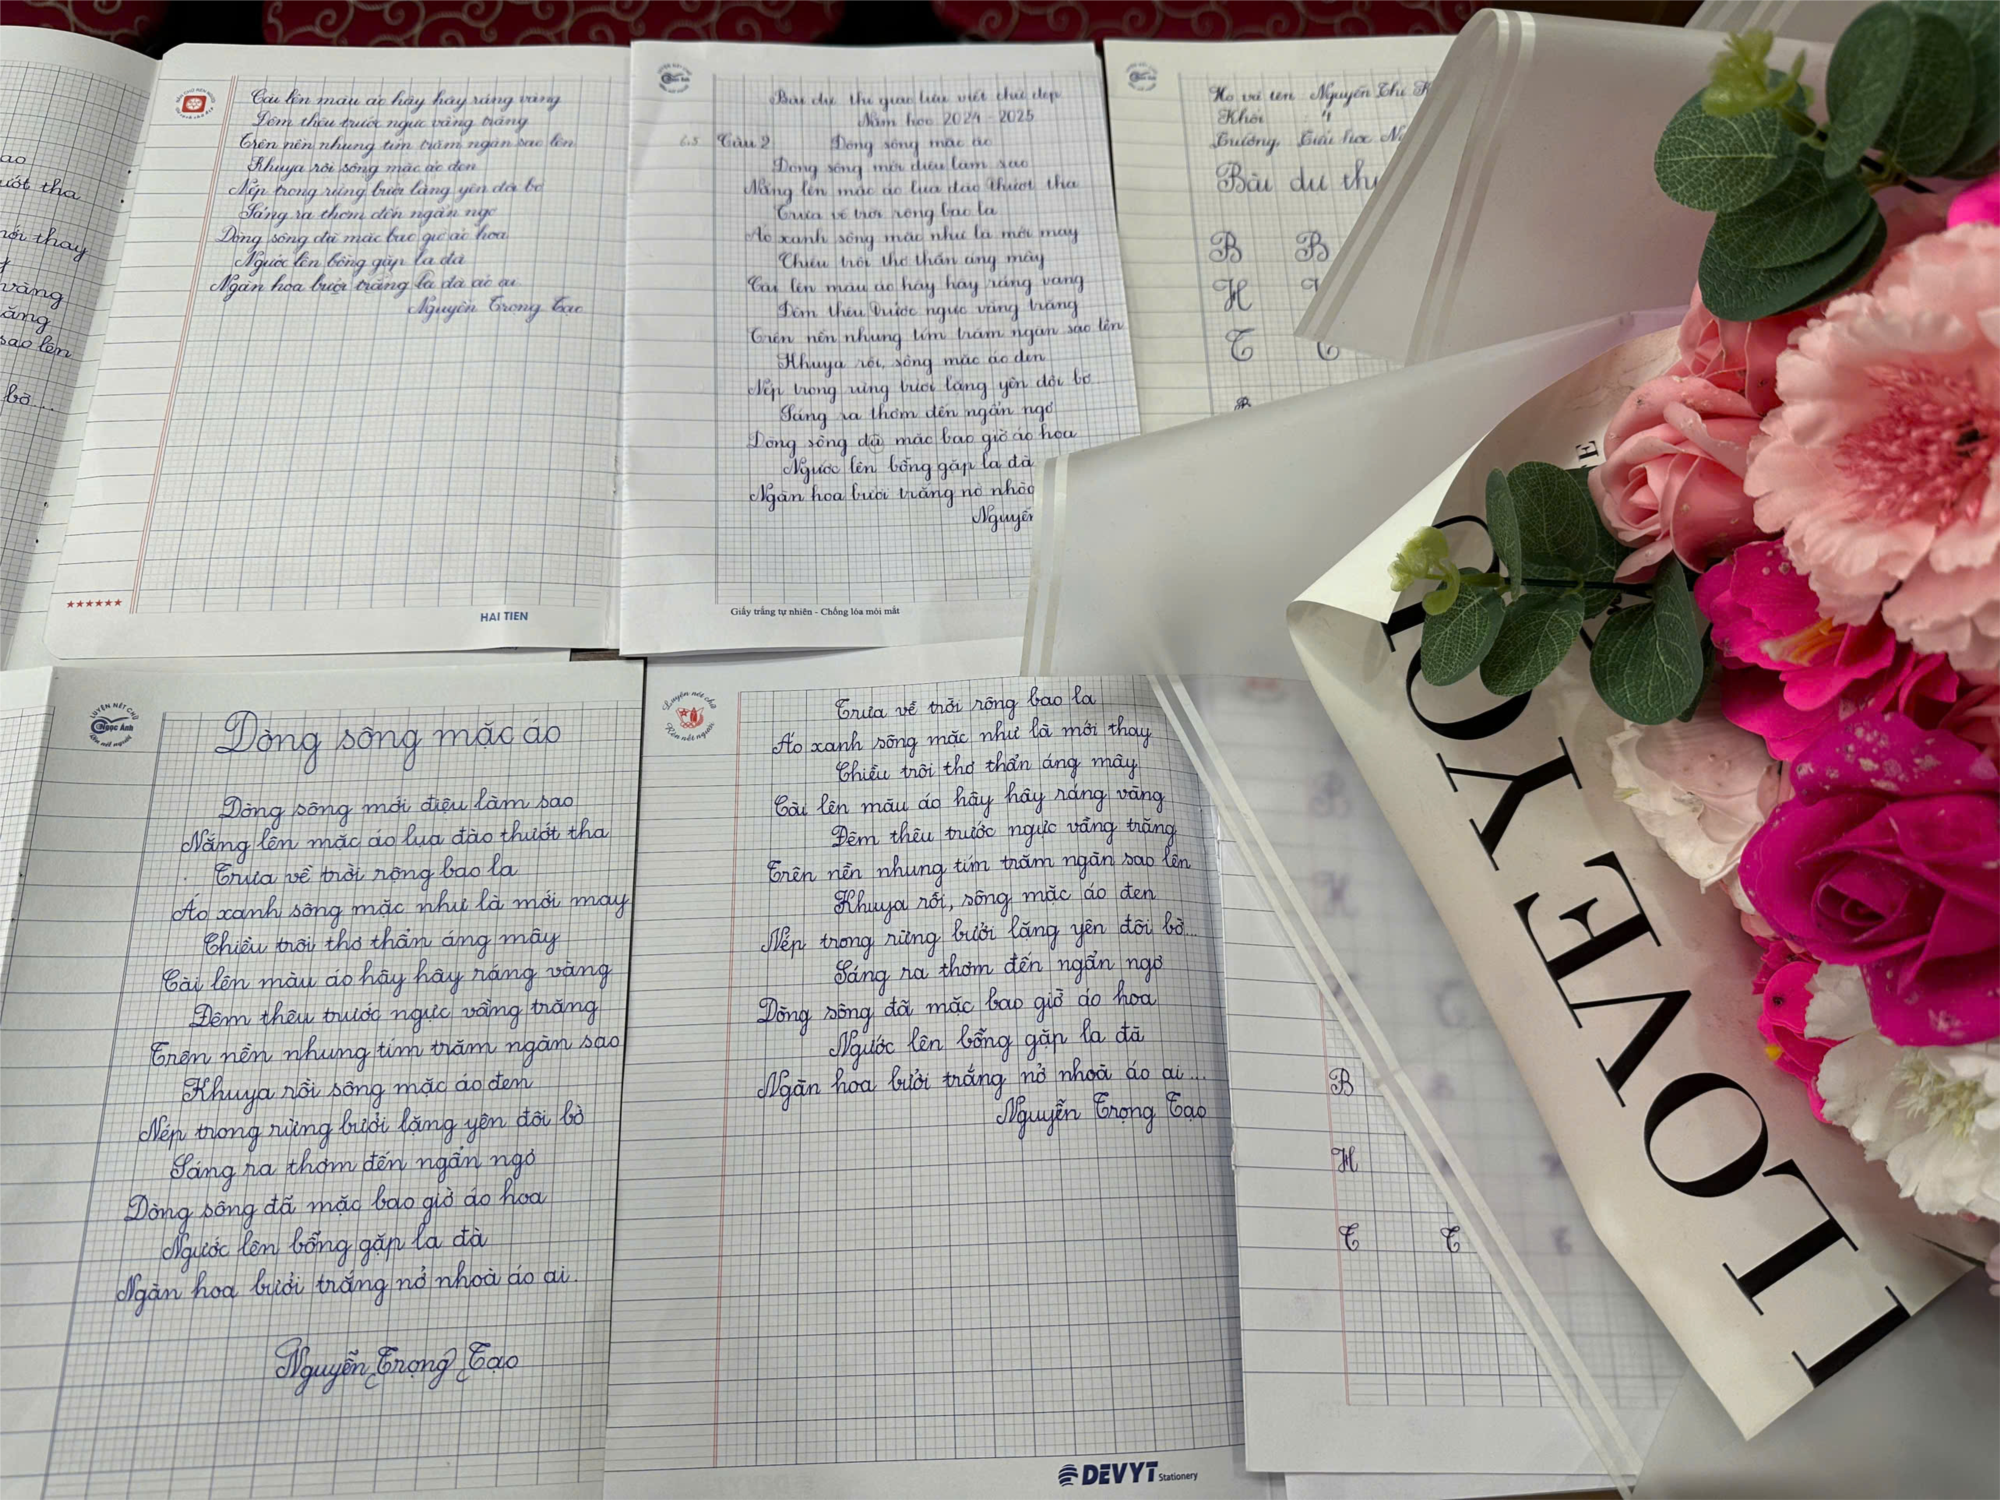 ao
ướt tha
mới thay
vàng
răng
sao lên
bờ...
Cài lên màu áo hây hây ráng vàng
Đêm thêu trước ngực vầng trăng
Trên nền nhung tím trăm ngàn sao lên
Khuya rồi sông mặc áo đen
Nép trong rừng bưởi lặng yên đôi bờ
Sáng ra thơm đến ngẩn ngơ
Dòng sông đã mặc bao giờ áo hoa
Ngước lên bỗng gặp la đà
Ngàn hoa bưởi trắng la đà áo ai.
Nguyễn Trọng Tạo
HAI TIEN
Bài dự thi giao lưu viết chữ đẹp
Năm học 2024 - 2025
6.5 Câu 2 Dòng sông mặc áo
Dòng sông mới điệu làm sao
Nắng lên mặc áo lụa đào thướt tha
Trưa về trời rộng bao la
Áo xanh sông mặc như là mới may
Chiều trôi thơ thẩn áng mây
Cài lên màu áo hây hây ráng vàng
Đêm thêu trước ngực vầng trăng
Trên nền nhung tím trăm ngàn sao lên
Khuya rồi, sông mặc áo đen
Nép trong rừng bưởi lặng yên đôi bờ...
Sáng ra thơm đến ngẩn ngơ
Dòng sông đã mặc bao giờ áo hoa
Ngước lên bỗng gặp la đà
Ngàn hoa bưởi trắng nở nhòa
Nguyễn
Giấy trắng tự nhiên - Chống lóa mỏi mắt
Họ và tên Nguyễn Thị
Khối 4
Trường Tiểu học
Bài dự thi
B B
H
T T
B
LUYỆN NÉT CHỮ
Ngọc Ánh
Rèn nết người
Dòng sông mặc áo
Dòng sông mới điệu làm sao
Nắng lên mặc áo lụa đào thướt tha
Trưa về trời rộng bao la
Áo xanh sông mặc như là mới may
Chiều trôi thơ thẩn áng mây
Cài lên màu áo hây hây ráng vàng
Đêm thêu trước ngực vầng trăng
Trên nền nhung tím trăm ngàn sao
Khuya rồi sông mặc áo đen
Nép trong rừng bưởi lặng yên đôi bờ
Sáng ra thơm đến ngẩn ngơ
Dòng sông đã mặc bao giờ áo hoa
Ngước lên bỗng gặp la đà
Ngàn hoa bưởi trắng nở nhoà áo ai.
Nguyễn Trọng Tạo
Luyện nét chữ
Rèn nết người
Trưa về trời rộng bao la
Áo xanh sông mặc như là mới thay
Chiều trôi thơ thẩn áng mây
Cài lên màu áo hây hây ráng vàng
Đêm thêu trước ngực vầng trăng
Trên nền nhung tím trăm ngàn sao lên
Khuya rồi, sông mặc áo đen
Nép trong rừng bưởi lặng yên đôi bờ...
Sáng ra thơm đến ngẩn ngơ
Dòng sông đã mặc bao giờ áo hoa
Ngước lên bỗng gặp la đà
Ngàn hoa bưởi trắng nở nhoà áo ai...
Nguyễn Trọng Tạo
DEVYT Stationery
B
H
T T
LOVE YOU